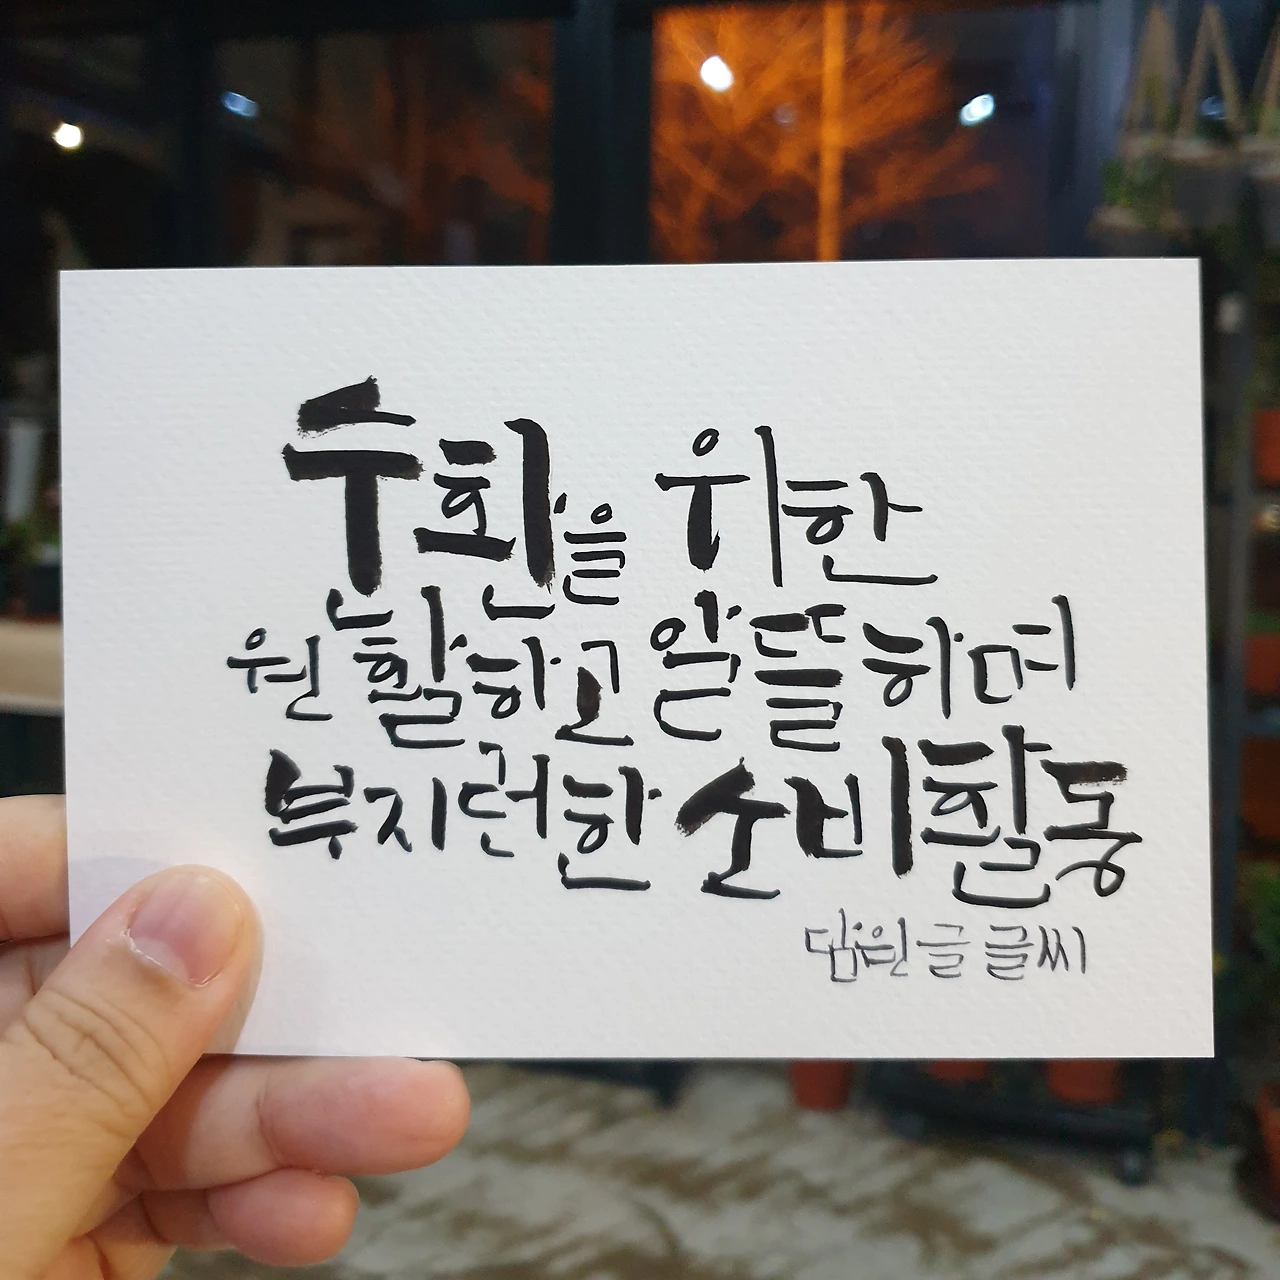 순환을 위한
원활하고 알뜰하며
부지런한 소비활동
담원글 글씨